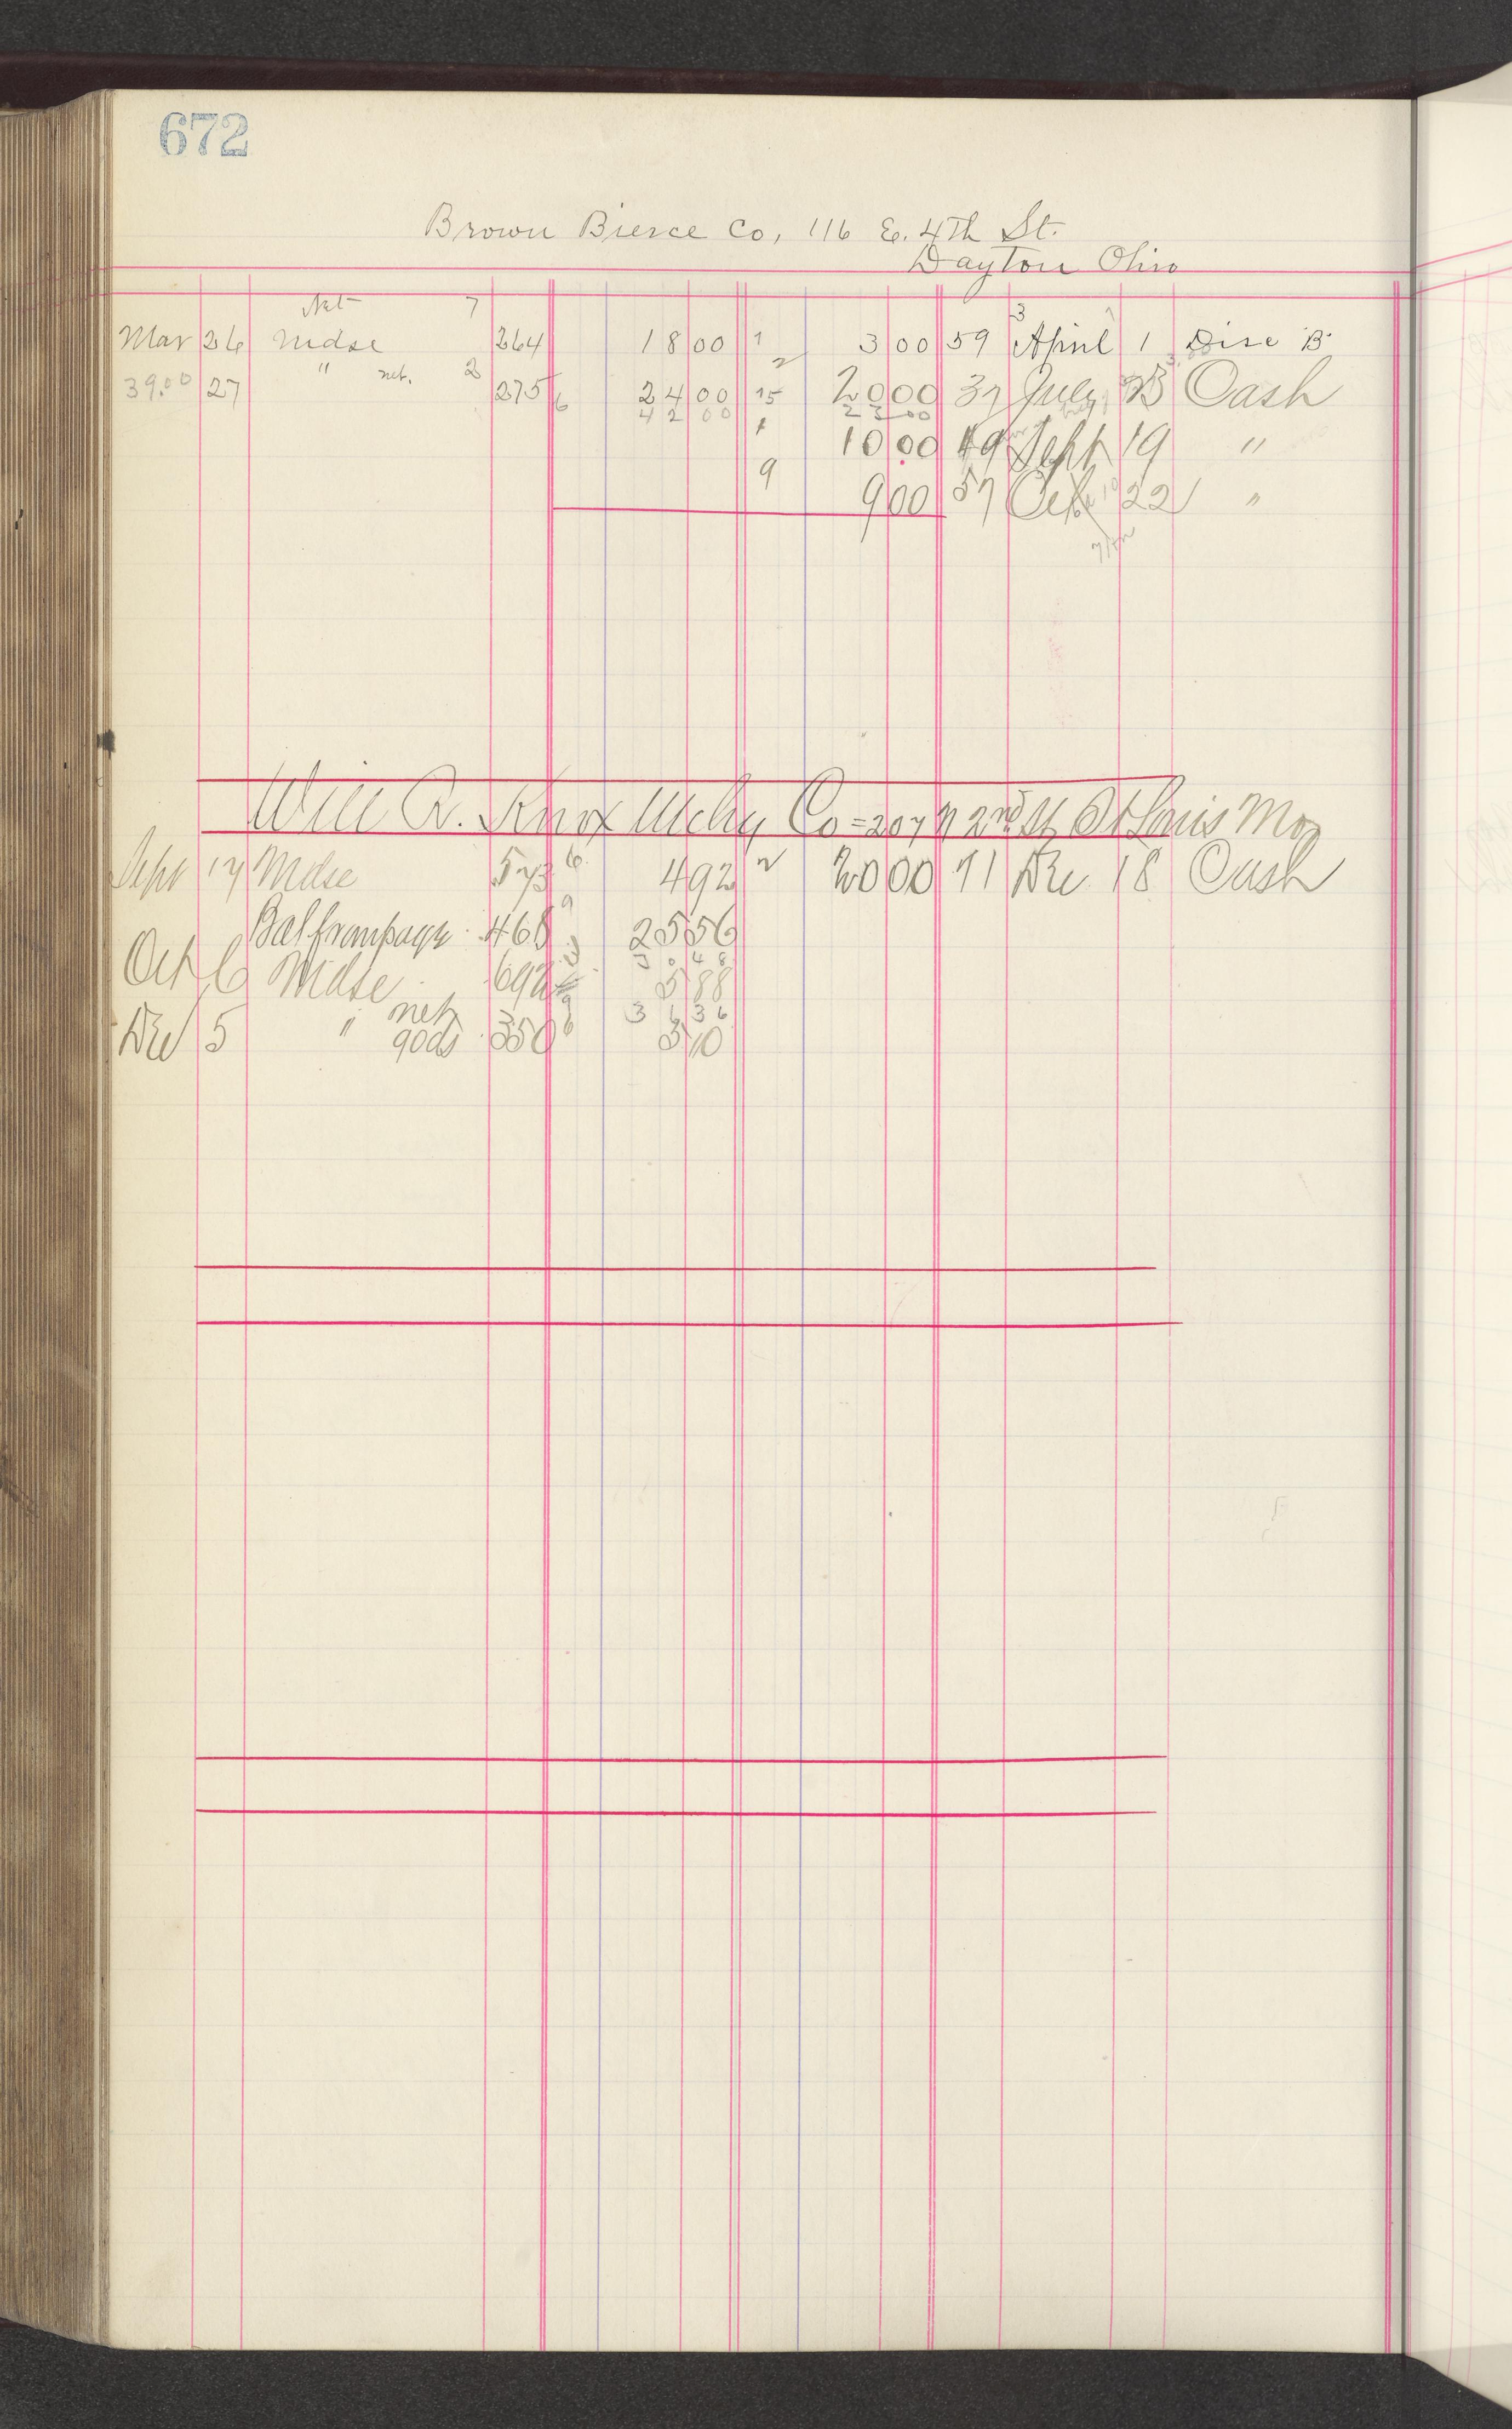 672
Brown Bierce Co, 116 E. 4th St.
Dayton Ohio
Net 7 3
Mar 26 Mdse 264 18 00 1 3 00 59 April 1 Disc B
2
39.00 27 " net. 2 275 6 24 00 15 20 00 37 July 23 Cash
42 00 23 00
1 10 00 49 Sept 19 "
9 9 00 57 Oct 22 "
Will R. Knox Mchy Co = 207 N 2nd St St Louis Mo
Sept 17 Mdse 573 6 4 92 2 20 00 71 Dec 18 Cash
Bal from page 468 9 25 56
30 48
Oct 6 Mdse 692 5 88
36 36
net
Dec 5 " 90ds 350 6 5 10